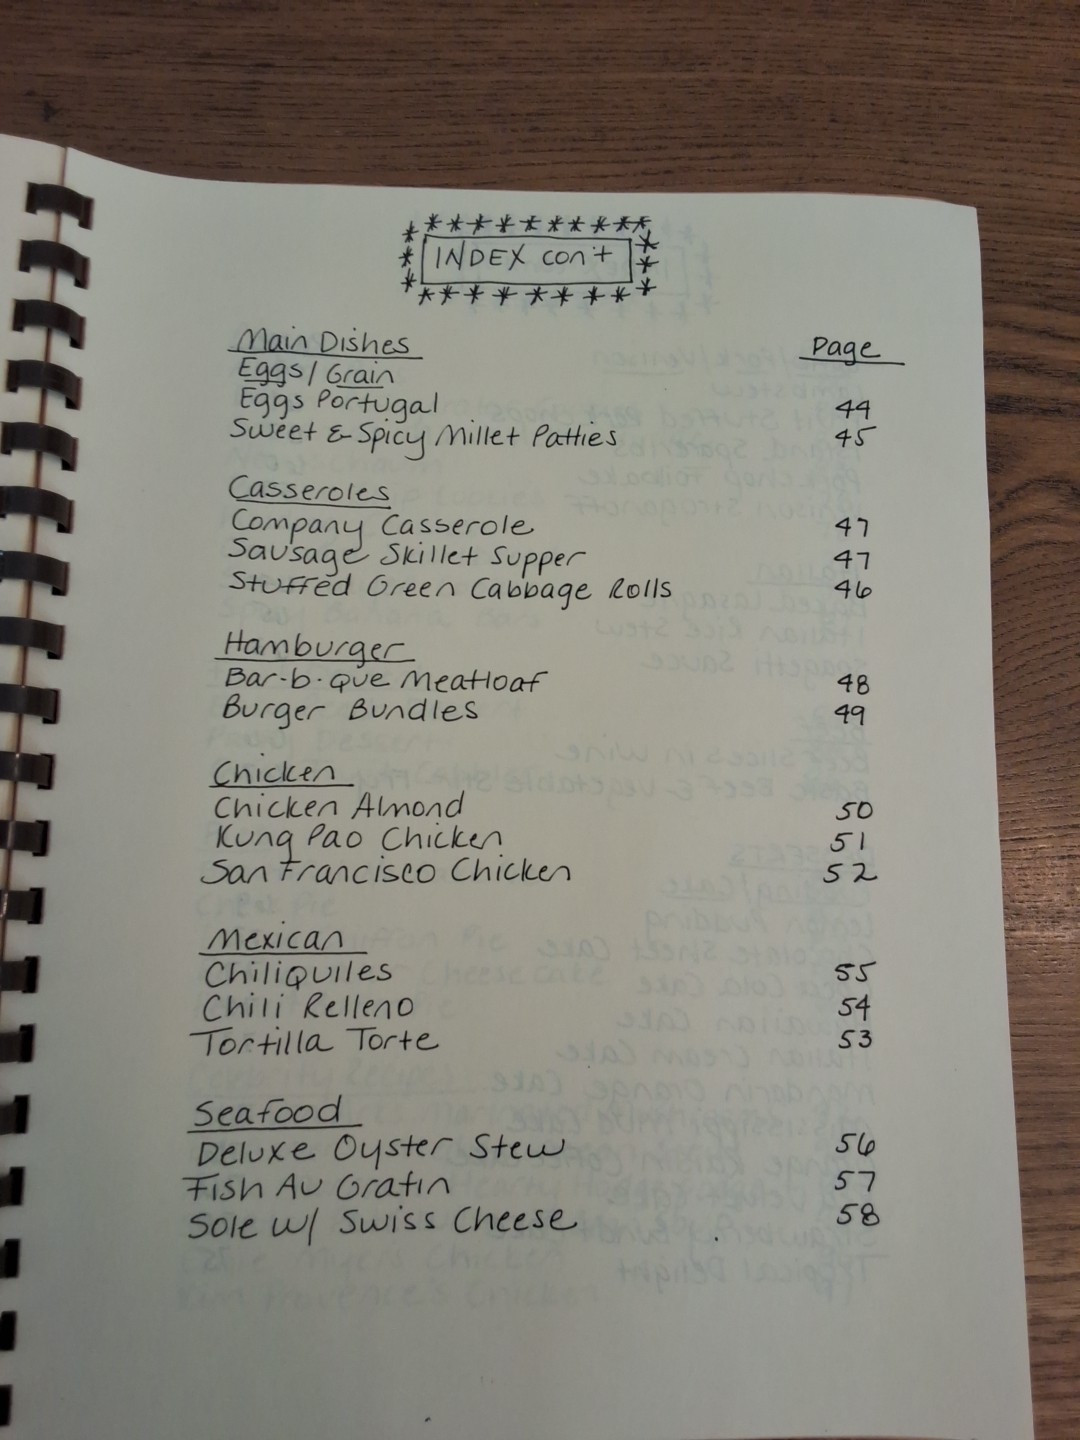 INDEX con't
Main Dishes Page
Eggs/Grain
Eggs Portugal 44
Sweet & Spicy Millet Patties 45
Casseroles
Company Casserole 47
Sausage Skillet Supper 47
Stuffed Green Cabbage Rolls 46
Hamburger
Bar-b-que Meatloaf 48
Burger Bundles 49
Chicken
Chicken Almond 50
Kung Pao Chicken 51
San Francisco Chicken 52
Mexican
Chiliquiles 55
Chili Relleno 54
Tortilla Torte 53
Seafood
Deluxe Oyster Stew 56
Fish Au Gratin 57
Sole w/ Swiss Cheese 58